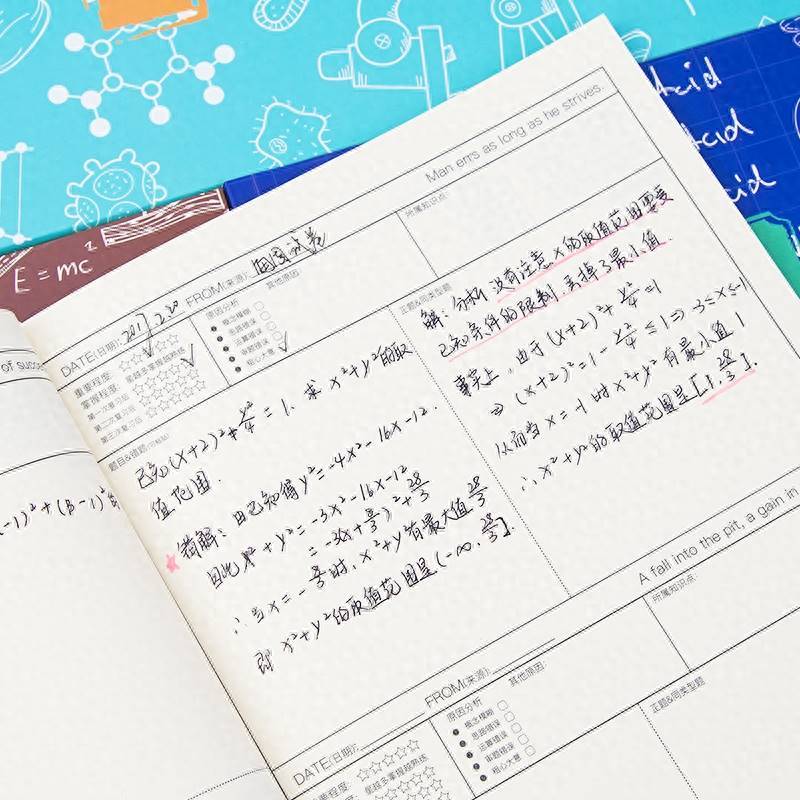 Acid
Acid
cid
E = mc²
Man errs as long as he strives.
所属知识点:
DATE(日期): 2017.2.20
FROM(来源): 周周试卷
重要程度:
掌握程度: 星越多掌握越熟练
第一次复习后
第二次复习后
第三次复习后
原因分析
概念模糊
思路错误
运算错误
审题错误
粗心大意 √
其他原因:
题目&错题(可粘贴)
已知(x+2)²+y²/4=1, 求x²+y²的取
值范围.
错解: 由已知得y²=-4x²-16x-12.
因此x²+y²=-3x²-16x-12
=-3(x+8/3)²+28/3
∴当x=-8/3时, x²+y²有最大值28/3
即 x²+y²的取值范围是(-∞, 28/3].
正题&同类型题
解: 分析 没有注意x的取值范围要受
已知条件的限制, 丢掉了最小值.
事实上, 由于(x+2)²+y²/4=1
⇒ (x+2)²=1-y²/4≤1⇒-3≤x≤-1
从而当x=-1时x²+y²有最小值1
∴x²+y²的取值范围是[1, 28/3].
OF success
-1)²+(B-1)²
A fall into the pit, a gain in
所属知识点:
DATE(日期):
FROM(来源):
重要程度:
掌握程度: 星越多掌握越熟练
原因分析
概念模糊
思路错误
运算错误
审题错误
粗心大意
其他原因:
正题&同类型题